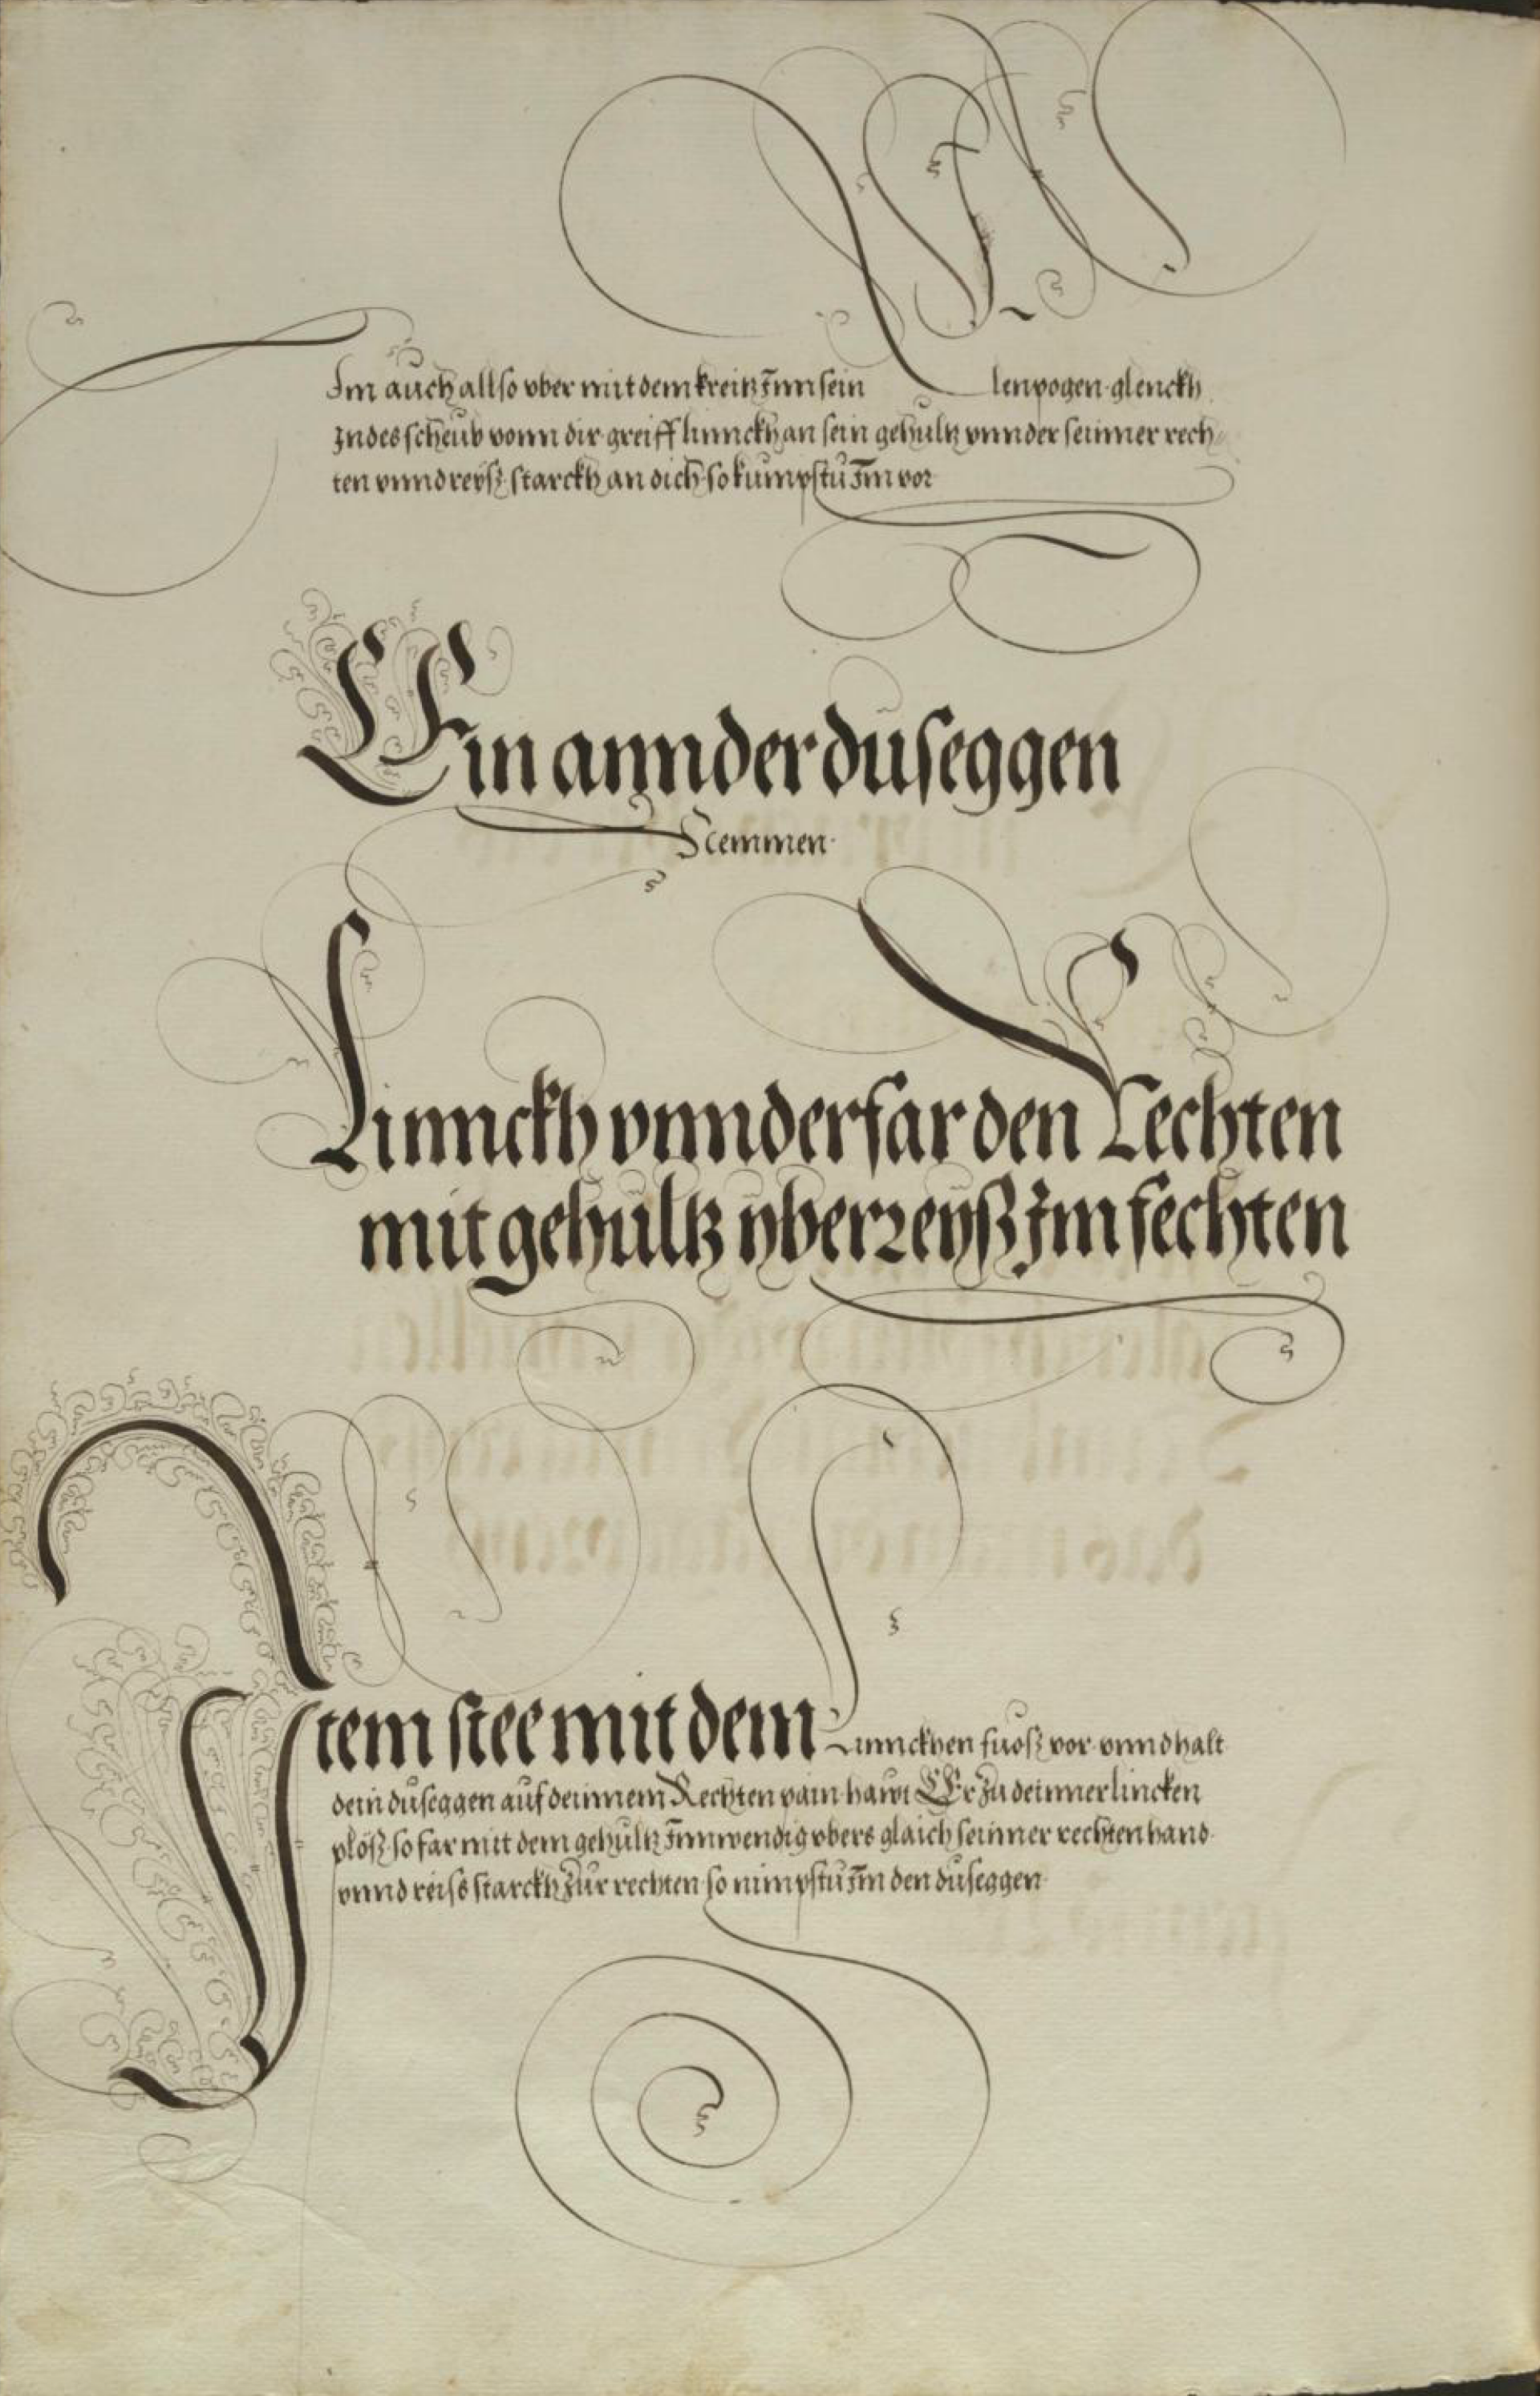 Im auch allso vber mit dem kreitz Inn sein Elenpogen glenckh
Indes scheub vonn dir greiff linnckh an sein gehultz vnnder seinner rech-
ten vnnd reyß starckh an dich so kumpstu Im vor
Ein annder duseggen
Nemmen
Linnckh vnnderfar den Rechten
mit gehültz yberreyß Im fechten
Item stee mit dem Linnckhen fuoß vor vnnd halt
dein duseggen auf deinnem Rechten pain hawt Er zu deinner lincken
plöß so far mit dem gehültz Innwendig vbers glaich seinner rechten hand
vnnd reiss starckh zur rechten so nimpstu Im den duseggen